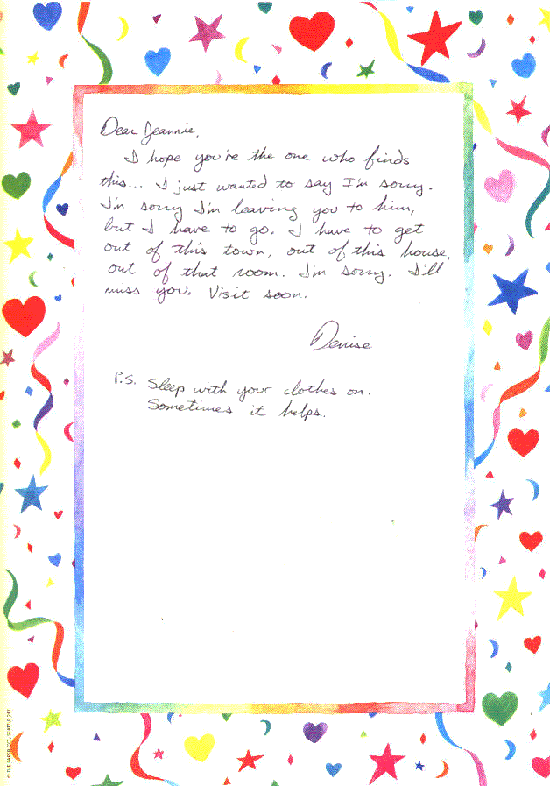 Dear Jeannie,
I hope you're the one who finds
this... I just wanted to say I'm sorry.
I'm sorry I'm leaving you to him,
but I have to go. I have to get
out of this town, out of this house,
out of that room. I'm sorry. I'll
miss you. Visit soon.
Denise
P.S. Sleep with your clothes on.
Sometimes it helps.